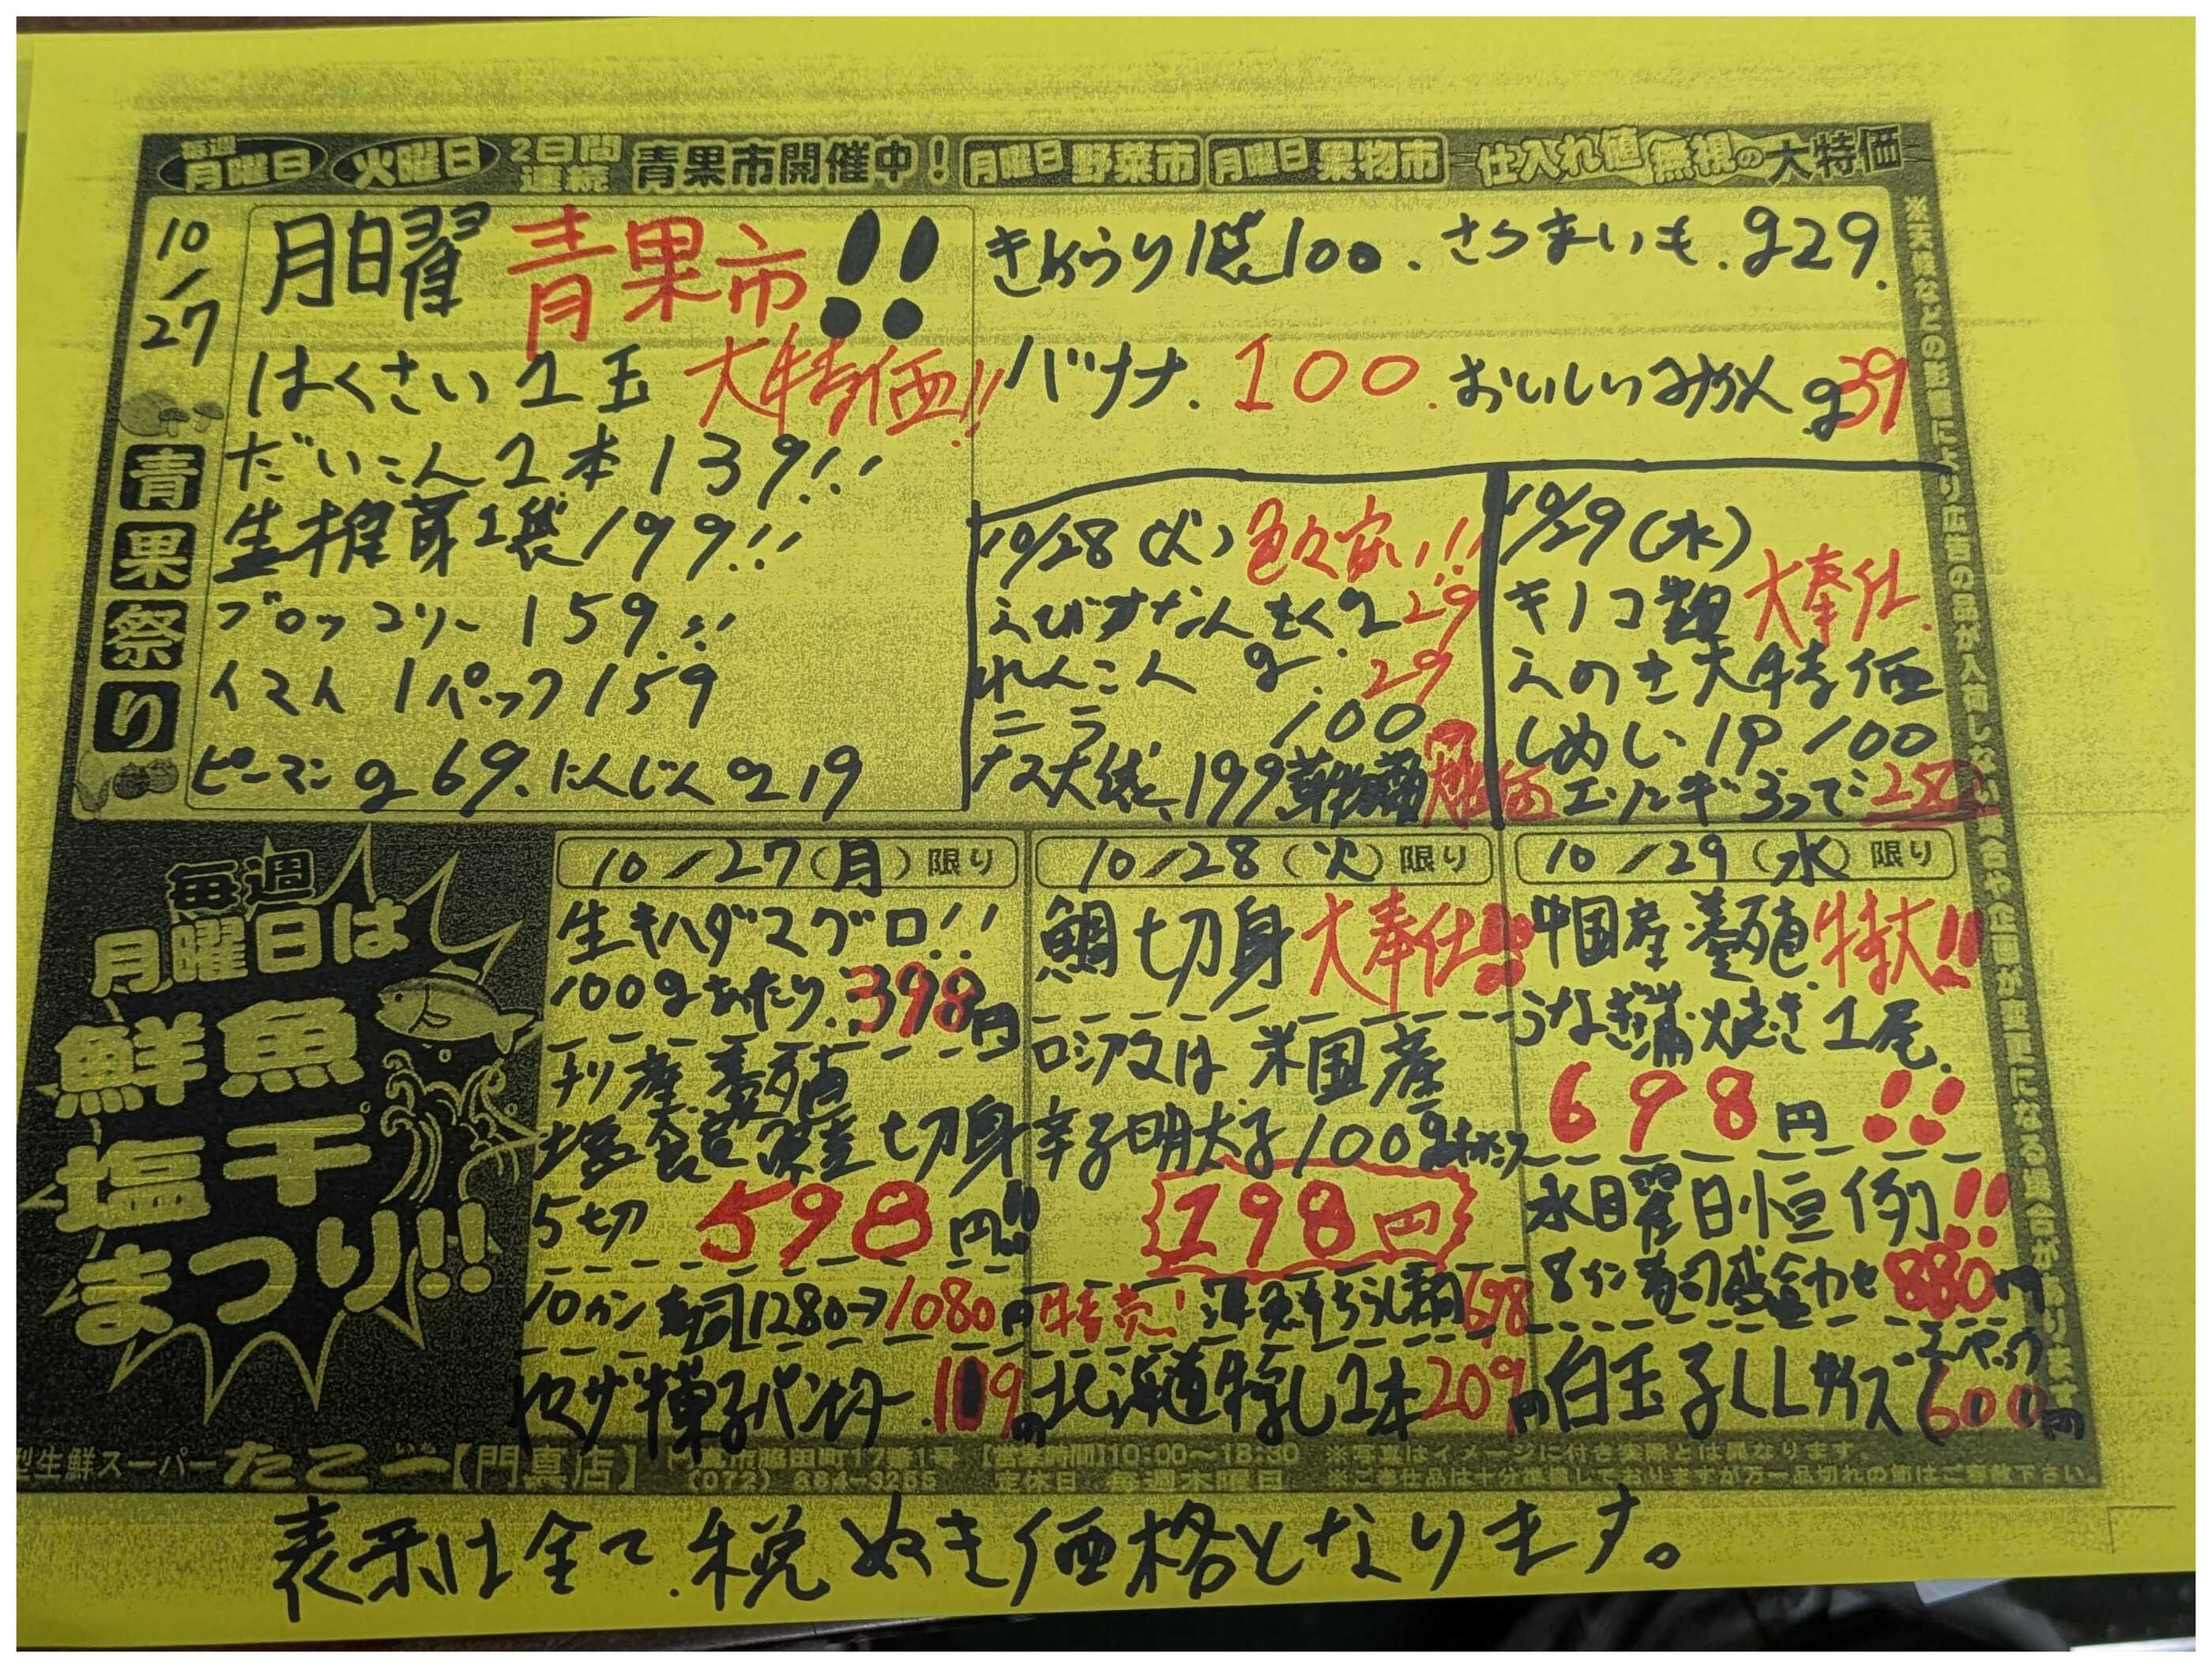 毎週
月曜日 火曜日 2日間連続 青果市開催中! 月曜日 野菜市 月曜日 果物市 仕入れ値無視の大特価
10/27
青果祭り
月曜 青果市!!
はくさい 1玉 大特価!!
だいこん 1本 139!!
生椎茸 1袋 199!!
ブロッコリー 159!!
1パック 159
ピーマン g69. にんじん g19
きゅうり 1袋 100. さつまいも. g29.
バナナ. 100. おいしいみかん g39
10/28 (火) 色々安い!!
g 29
れんこん g. 29
ニラ 100
ナス大袋. 199
10/29 (水)
キノコ類 大奉仕
えのき大特価
しめじ 1P 100
エリンギ 3つで
毎週
月曜日は
鮮魚
塩干
まつり!!
10/27(月)限り
生キハダマグロ!!
100gあたり. 398円
チリ産 養殖
塩銀鮭 切身
5切 598円!!
10カン 寿司 1280→1080円
ヤマザキ菓子パン
10/28(火)限り
鯛切身 大奉仕!!
ロシア又は 米国産
辛子明太子 100gあたり
198円
特売! 海鮮ちらし 698
北海道牛乳 1本 209円
10/29(水)限り
中国産 養殖 特大!!
うなぎ蒲焼き 1尾.
698円!!
水曜日恒例!!
8カン寿司盛合わせ 880円
白玉子LLサイズ 600円
型生鮮スーパー たこ一【門真店】 (072) 884-3255 【営業時間】10:00~18:30 定休日 毎週木曜日
※写真はイメージに付き実際とは異なります。
※ご奉仕品は十分準備しておりますが万一品切れの節はご容赦下さい。
表示は全て.税ぬき価格となります。